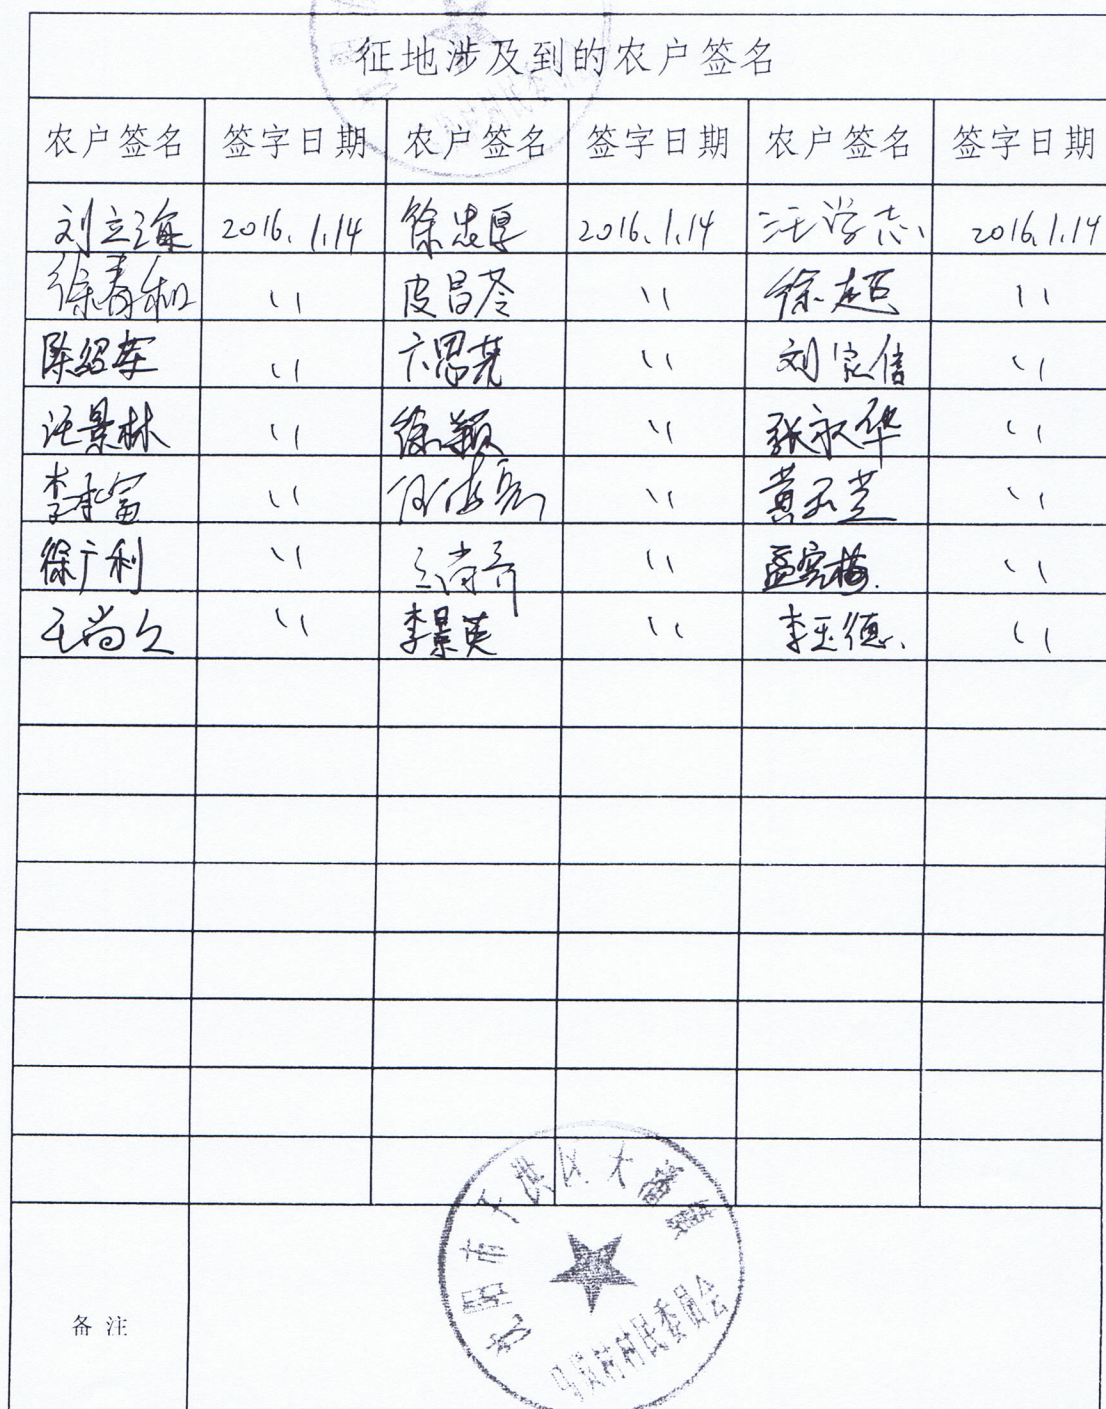 征地涉及到的农户签名
农户签名 签字日期 农户签名 签字日期 农户签名 签字日期
刘立海 2016.1.14 徐忠厚 2016.1.14 汪学志 2016.1.14
徐春和 〃 皮昌苓 〃 徐超 〃
陈绍军 〃 〃 刘家信 〃
汪景林 〃 徐颖 〃 张永华 〃
李富 〃 何海亮 〃 黄玉芝 〃
徐广利 〃 王尚奇 〃 孟宪梅 〃
王尚久 〃 李景英 〃 李玉德 〃
沈阳市于洪区大
村村民委员会
备注